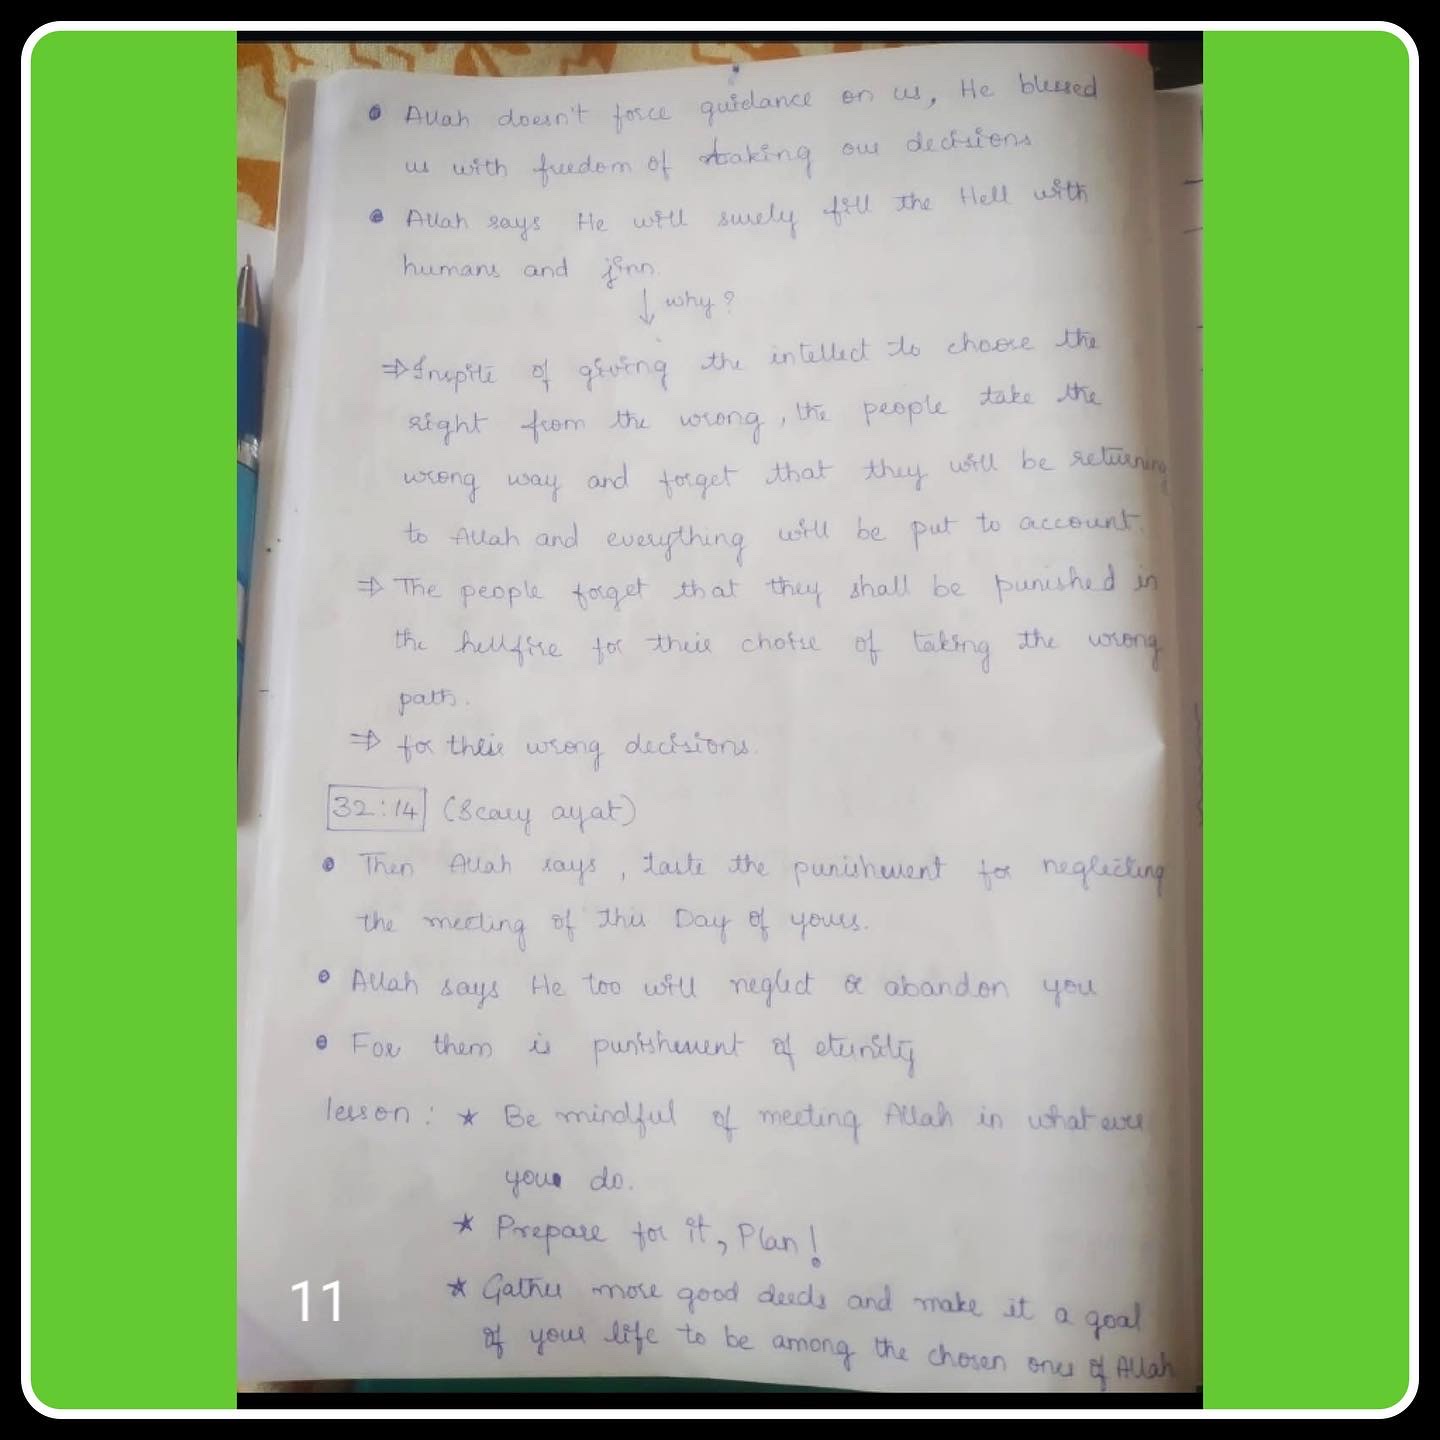 • Allah doesn't force guidance on us, He blessed
us with freedom of taking our decisions
• Allah says He will surely fill the Hell with
humans and jinn.
↓ why?
⇒ Inspite of giving the intellect to choose the
right from the wrong, the people take the
wrong way and forget that they will be returning
to Allah and everything will be put to account.
⇒ The people forget that they shall be punished in
the hellfire for their choise of taking the wrong
path.
⇒ for their wrong decisions.
32:14 (Scary ayat)
• Then Allah says, taste the punishment for neglecting
the meeting of this Day of yours.
• Allah says He too will neglect or abandon you
• For them is punishement of eternity
lesson: ★ Be mindful of meeting Allah in what ever
you do.
★ Prepare for it, Plan!
★ Gather more good deeds and make it a goal
of your life to be among the chosen ones of Allah
11